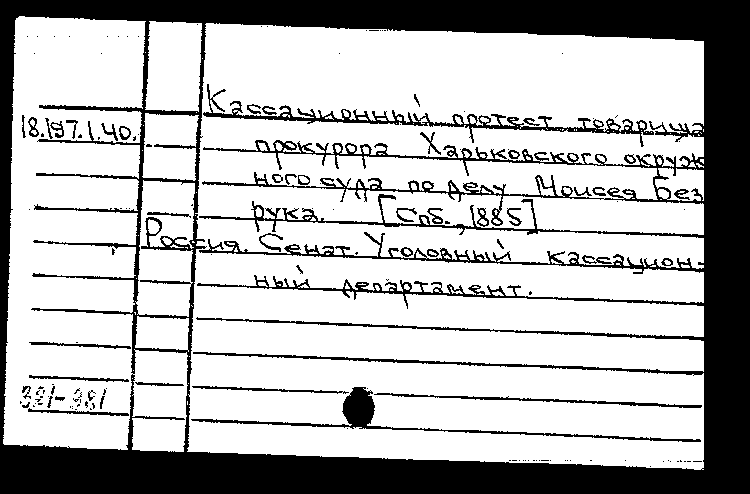 Кассационный протест товарища
18.197.1.40.
прокурора Харьковского окруж
ного суда по делу Моисея Без
рука. [Спб., 1885]
Россия. Сенат. Уголовный кассацион-
ный департамент.
391-981